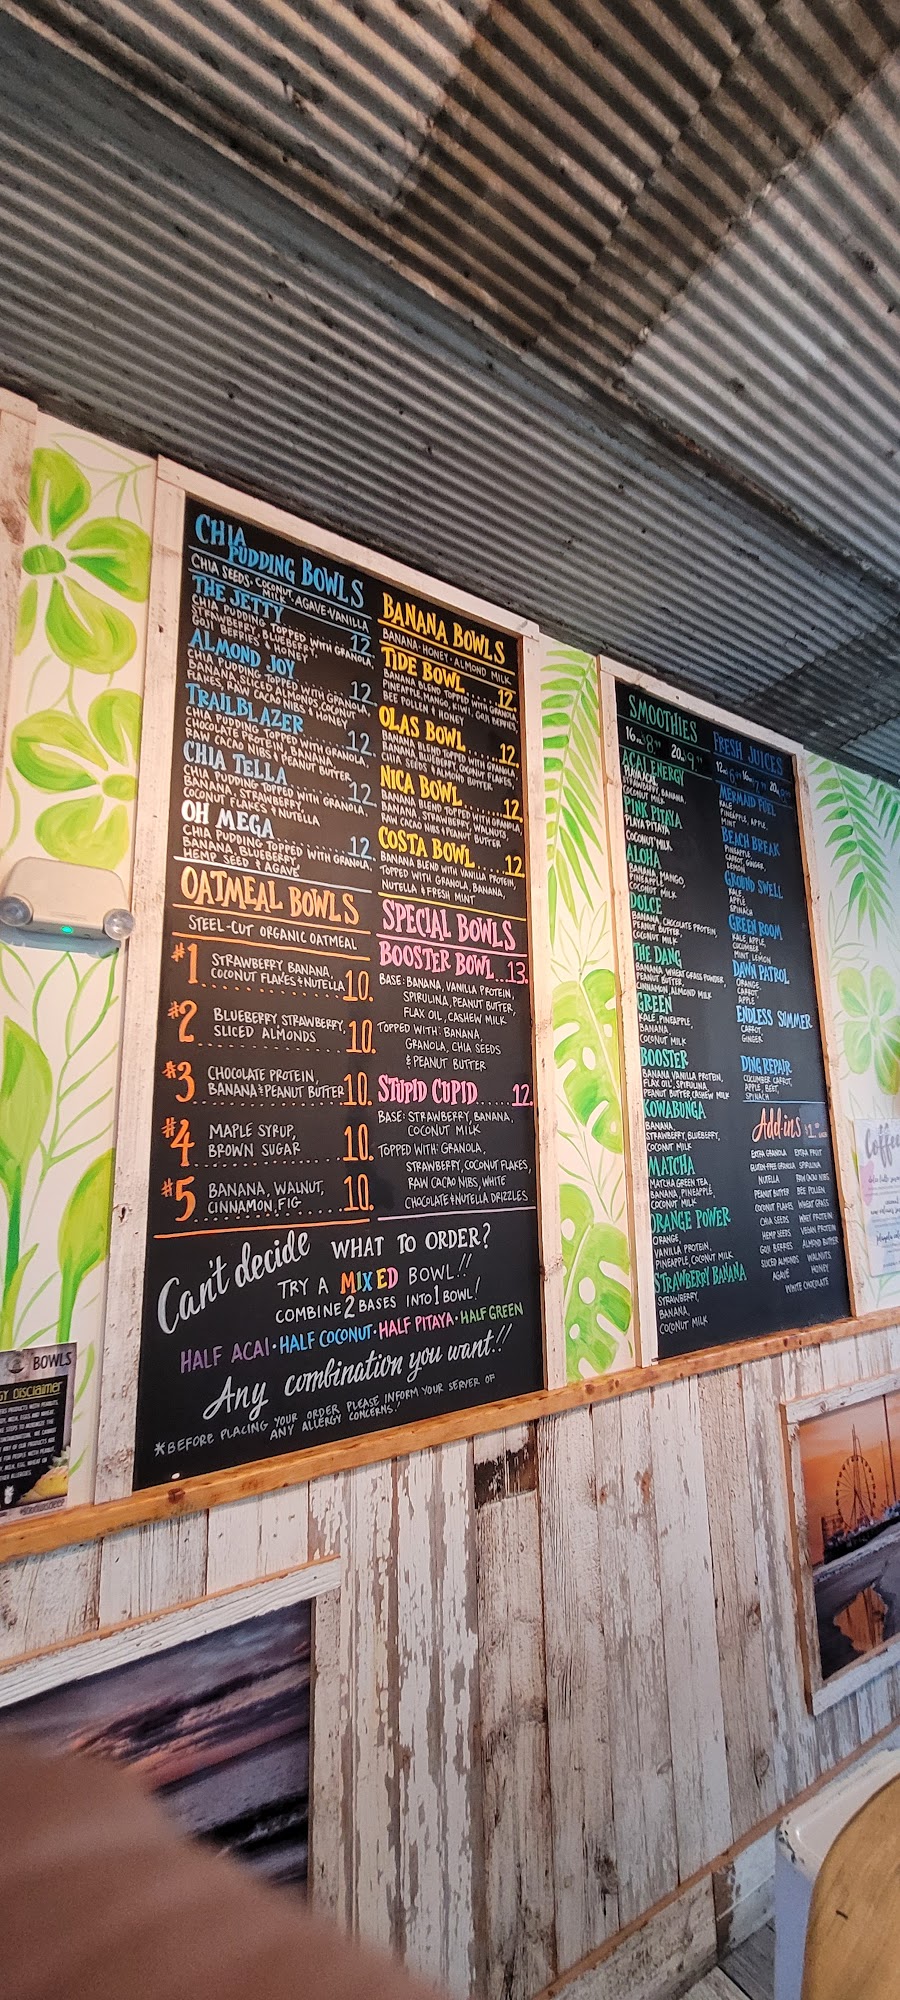 CHIA
PUDDING BOWLS
CHIA SEEDS · COCONUT
MILK · AGAVE · VANILLA
THE JETTY 12.
CHIA PUDDING TOPPED WITH GRANOLA,
STRAWBERRY, BLUEBERRY,
GOJI BERRIES & HONEY
ALMOND JOY 12.
CHIA PUDDING TOPPED WITH GRANOLA,
BANANA, SLICED ALMONDS, COCONUT
FLAKES, RAW CACAO NIBS & HONEY
TRAILBLAZER 12.
CHIA PUDDING TOPPED WITH GRANOLA,
CHOCOLATE PROTEIN, BANANA,
RAW CACAO NIBS & PEANUT BUTTER
CHIA TELLA 12
CHIA PUDDING TOPPED WITH GRANOLA,
BANANA, STRAWBERRY,
COCONUT FLAKES & NUTELLA
OH MEGA 12.
CHIA PUDDING TOPPED WITH GRANOLA,
BANANA, BLUEBERRY,
HEMP SEED & AGAVE
OATMEAL BOWLS
STEEL-CUT ORGANIC OATMEAL
#1 STRAWBERRY, BANANA,
COCONUT FLAKES & NUTELLA 10.
#2 BLUEBERRY, STRAWBERRY,
SLICED ALMONDS 10.
#3 CHOCOLATE PROTEIN,
BANANA & PEANUT BUTTER 10.
#4 MAPLE SYRUP,
BROWN SUGAR 10.
#5 BANANA, WALNUT,
CINNAMON, FIG 10.
BANANA BOWLS
BANANA · HONEY · ALMOND MILK
TIDE BOWL 12.
BANANA BLEND TOPPED WITH GRANOLA,
PINEAPPLE, MANGO, KIWI, GOJI BERRIES,
BEE POLLEN & HONEY
OLAS BOWL 12.
BANANA BLEND TOPPED WITH GRANOLA,
BANANA, BLUEBERRY, COCONUT FLAKES,
CHIA SEEDS & ALMOND BUTTER
NICA BOWL 12.
BANANA BLEND TOPPED WITH GRANOLA,
BANANA, STRAWBERRY, WALNUTS,
RAW CACAO NIBS & PEANUT BUTTER
COSTA BOWL 12
BANANA BLEND WITH VANILLA PROTEIN,
TOPPED WITH GRANOLA, BANANA,
NUTELLA & FRESH MINT
SPECIAL BOWLS
BOOSTER BOWL 13.
BASE: BANANA, VANILLA PROTEIN,
SPIRULINA, PEANUT BUTTER,
FLAX OIL, CASHEW MILK
TOPPED WITH: BANANA,
GRANOLA, CHIA SEEDS
& PEANUT BUTTER
STUPID CUPID 12.
BASE: STRAWBERRY, BANANA,
COCONUT MILK
TOPPED WITH: GRANOLA,
STRAWBERRY, COCONUT FLAKES,
RAW CACAO NIBS, WHITE
CHOCOLATE & NUTELLA DRIZZLES
Can't decide WHAT TO ORDER?
TRY A MIXED BOWL!!
COMBINE 2 BASES INTO 1 BOWL!
HALF ACAI · HALF COCONUT · HALF PITAYA · HALF GREEN
Any combination you want!!
*BEFORE PLACING YOUR ORDER PLEASE INFORM YOUR SERVER OF
ANY ALLERGY CONCERNS!
SMOOTHIES
16oz 20oz
ACAI ENERGY
STRAWBERRY, BANANA,
COCONUT MILK
PINK PITAYA
COCONUT MILK
ALOHA
BANANA, MANGO
PINEAPPLE
COCONUT MILK
DOLCE
BANANA, CHOCOLATE PROTEIN
PEANUT BUTTER,
COCONUT MILK
THE DANG
BANANA, WHEAT GRASS POWDER
PEANUT BUTTER,
CINNAMON, ALMOND MILK
GREEN
KALE, PINEAPPLE,
BANANA
COCONUT MILK
BOOSTER
BANANA VANILLA PROTEIN,
FLAX OIL, SPIRULINA
PEANUT BUTTER, CASHEW MILK
KOWABUNGA
BANANA
STRAWBERRY, BLUEBERRY,
COCONUT MILK
MATCHA
MATCHA GREEN TEA,
BANANA, PINEAPPLE,
COCONUT MILK
ORANGE POWER
ORANGE,
VANILLA PROTEIN,
PINEAPPLE, COCONUT MILK
STRAWBERRY BANANA
STRAWBERRY,
BANANA,
COCONUT MILK
FRESH JUICES
12oz 16oz 20oz
MERMAID FUEL
KALE
PINEAPPLE, APPLE,
MINT
BEACH BREAK
PINEAPPLE
CARROT, GINGER,
LEMON
GROUND SWELL
KALE
APPLE
SPINACH
GREEN ROOM
KALE, APPLE,
CUCUMBER
MINT, LEMON
DAWN PATROL
ORANGE,
CARROT,
APPLE
ENDLESS SUMMER
CARROT,
GINGER
DING REPAIR
CUCUMBER, CARROT,
APPLE, BEET,
SPINACH
Add-ins $1.
EXTRA GRANOLA EXTRA FRUIT
GLUTEN-FREE GRANOLA SPIRULINA
NUTELLA RAW CACAO NIBS
PEANUT BUTTER BEE POLLEN
COCONUT FLAKES WHEAT GRASS
CHIA SEEDS WHEY PROTEIN
HEMP SEEDS VEGAN PROTEIN
GOJI BERRIES ALMOND BUTTER
SLICED ALMONDS WALNUTS
AGAVE HONEY
WHITE CHOCOLATE
Coffee
BOWLS
GY DISCLAIMER